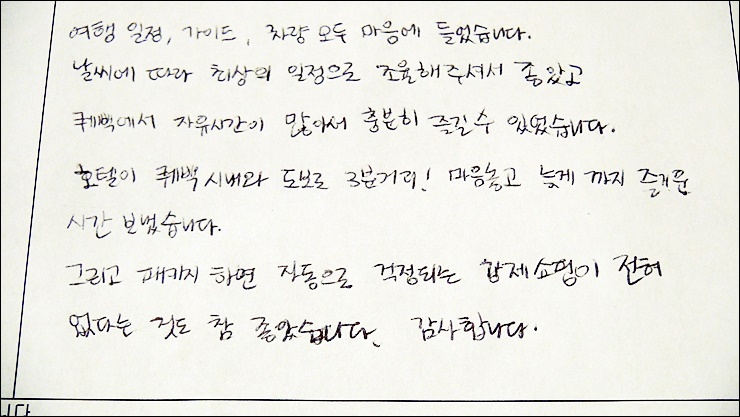 여행 일정, 가이드, 차량 모두 마음에 들었습니다.
날씨에 따라 최상의 일정으로 조율해주셔서 좋았고
퀘백에서 자유시간이 많아서 충분히 즐길수 있었습니다.
호텔이 퀘백 시내와 도보로 3분거리! 마음놓고 늦게 까지 즐거운
시간 보냈습니다.
그리고 패키지 하면 자동으로 걱정되는 강제쇼핑이 전혀
없다는 것도 참 좋았습니다. 감사합니다.
니다